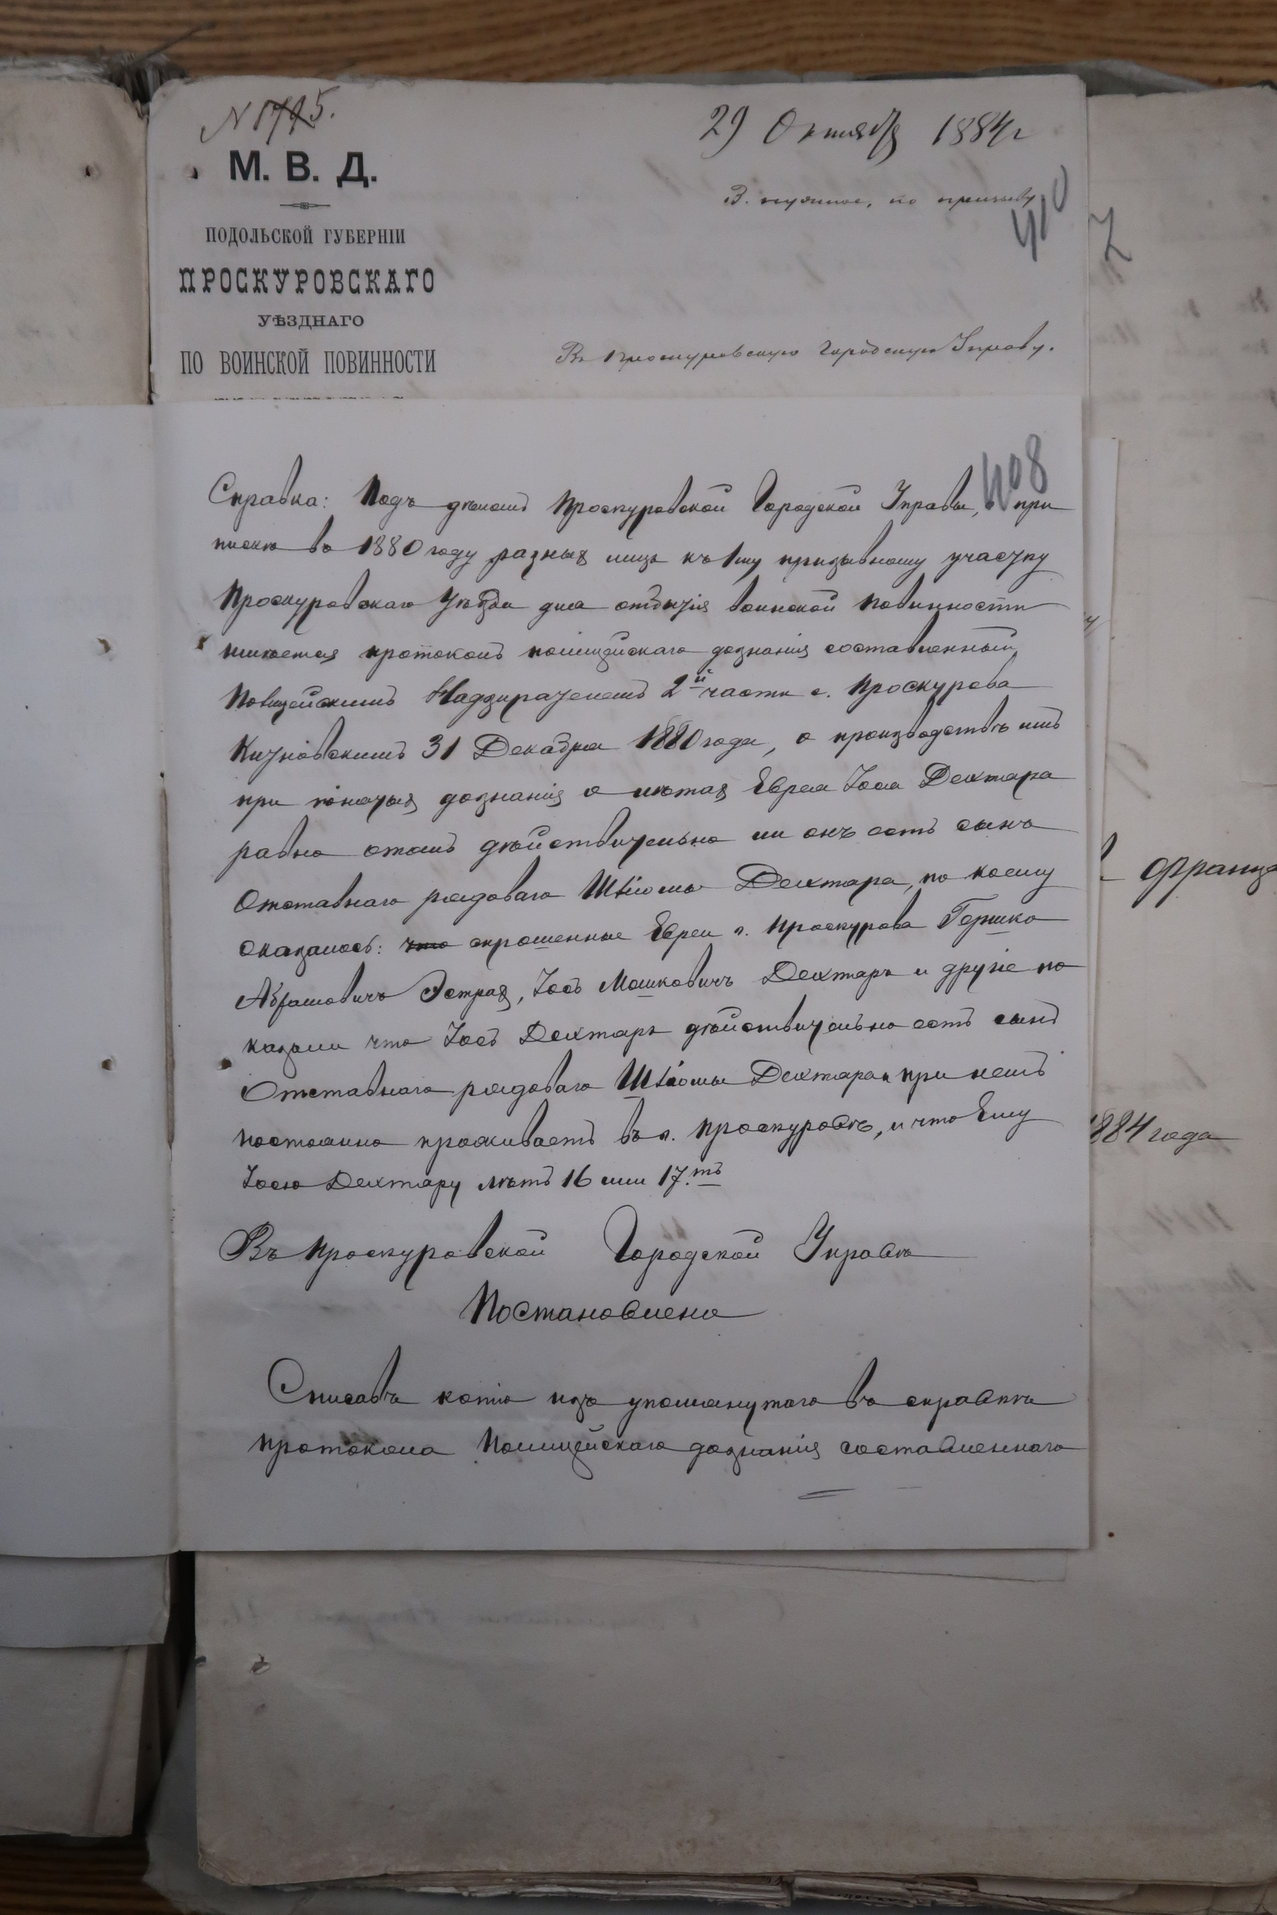 N 1775.
29 Октября 1884 г
М. В. Д.
В. нужное, по призыву
410
ПОДОЛЬСКОЙ ГУБЕРНІИ
ПРОСКУРОВСКАГО
УѢЗДНАГО
ПО ВОИНСКОЙ ПОВИННОСТИ
Въ Проскуровскую Городскую Управу.
408
Справка: Подъ дѣломъ Проскуровской Городской Управы, о при
пискѣ въ 1880 году разныхъ лицъ къ 1му призывному участку
Проскуровскаго Уѣзда для отбытія воинской повинности
имѣется протоколъ полицейскаго дознанія составленный
Полицейскимъ Надзирателемъ 2й части г. Проскурова
31 Декабря 1880 года, о производствѣ имъ
при понятыхъ дознанія о лѣтахъ Еврея Іося Дехтара
равно о томъ дѣйствительно ли онъ есть сынъ
Отставнаго рядоваго Шліомы Дехтара, по коему
оказалось: что спрошенные Евреи г. Проскурова Гершко
Абрамовичъ Эстрах, Іось Мошковичъ Дехтаръ и другіе по
казали что Іось Дехтаръ дѣйствительно есть сынъ
Отставнаго рядоваго Шліомы Дехтара и при немъ
постоянно проживаетъ въ г. Проскуровѣ, и что Ему
Іосю Дехтару лѣтъ 16 или 17.ть
Въ Проскуровской Городской Управѣ
Постановлено
Списавъ копію изъ упомянутаго въ справкѣ
протокола Полицейскаго дознанія составленнаго
франц
1884 года